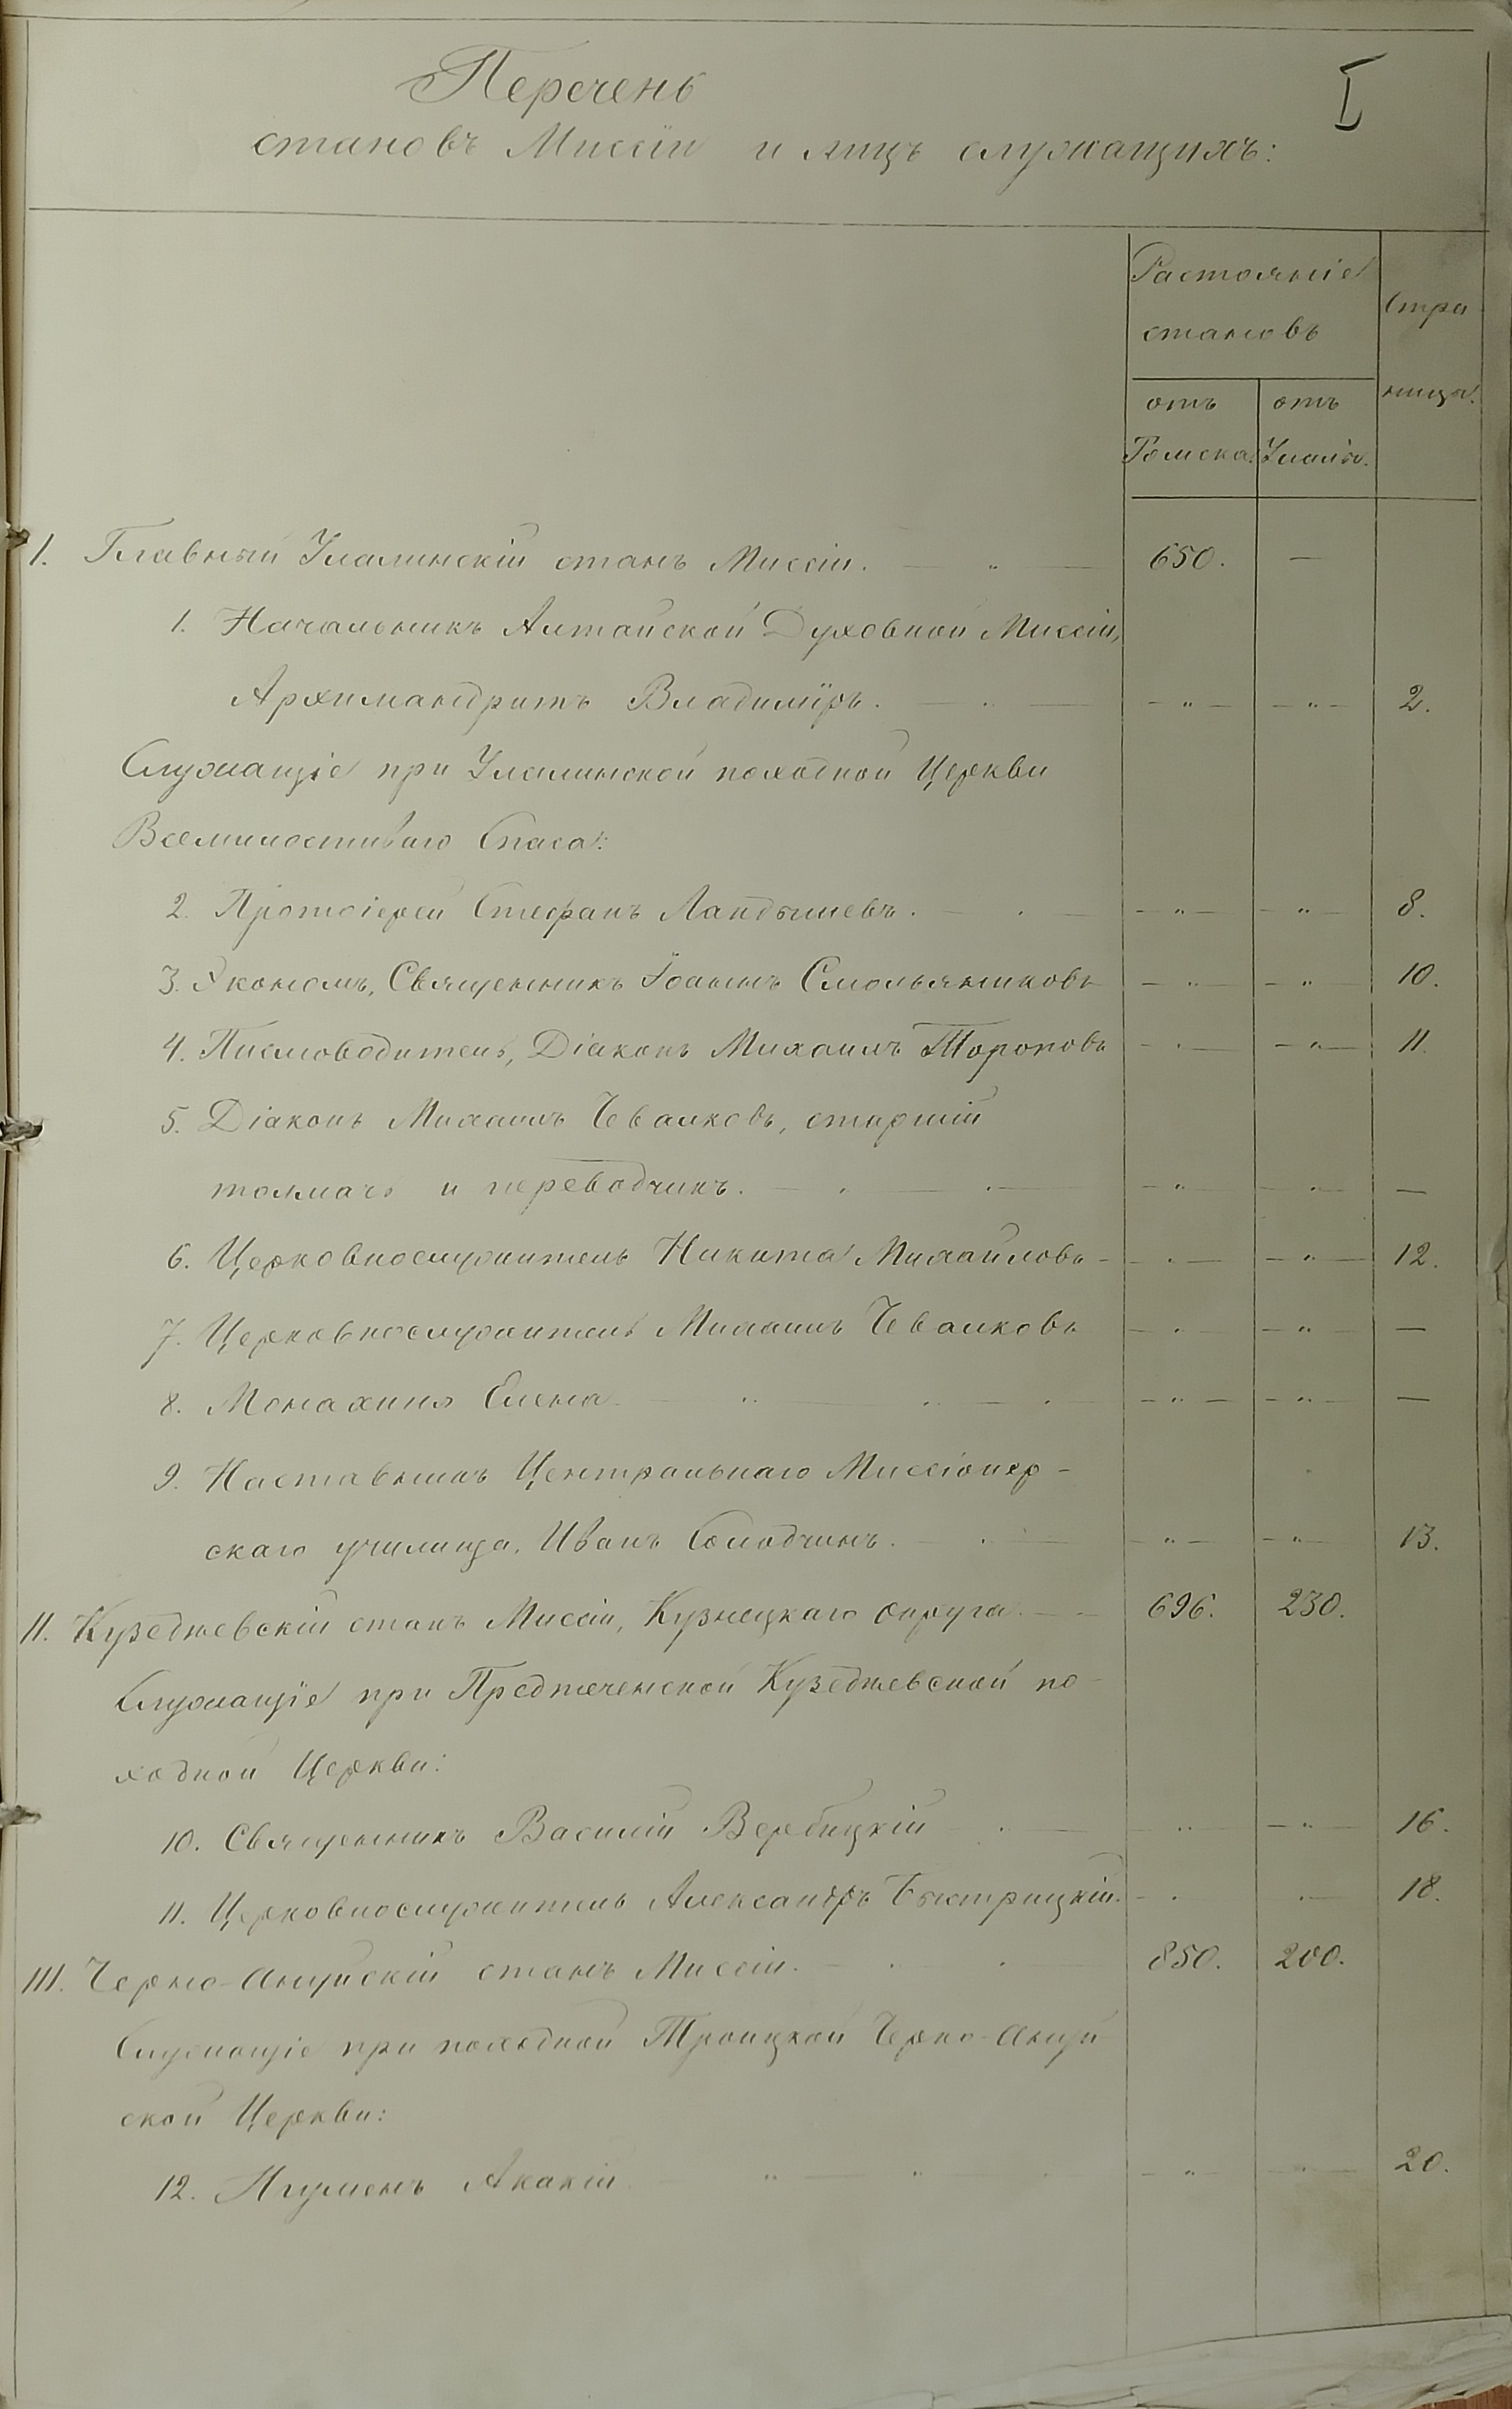 Перечень
становъ Миссіи и лицъ служащихъ:
I
Растояніе
становъ
Стра
ница.
отъ
отъ
Томска.
Улалы.
I. Главный Улалинскій станъ Миссіи. — „ — 650. —
1. Начальникъ Алтайской Духовной Миссіи,
Архимандритъ Владиміръ. — „ — — „ — — „ — 2.
Служащіе при Улалинской походной Церкви
Всемилостиваго Спаса:
2. Протоіерей Стефанъ Ландышевъ. — „ — — „ — — „ — 8.
3. Экономъ, Священникъ Іоаннъ Смольянниковъ — „ — — „ — 10.
4. Писмоводитель, Діаконъ Михаилъ Тороповъ — „ — — „ — 11.
5. Діаконъ Михаилъ Чевалковъ, старшій
толмачъ и переводчикъ. — „ — „ — — „ — — „ — —
6. Церковнослужитель Никита Михайловъ — — „ — — „ — 12.
7. Церковнослужитель Михаилъ Чевалковъ — „ — — „ — —
8. Монахиня Елена — „ — „ — „ — „ — — „ — —
9. Наставникъ Центральнаго Миссіонер-
скаго училища, Иванъ Солодчинъ. — „ — — „ — — „ — 13.
II. Кузедѣевскій станъ Миссіи, Кузнецкаго округа. — 696. 230.
Служащіе при Предтеченской Кузедѣевской по-
ходной Церкви:
10. Священникъ Василій Вербицкій „ — — „ — — „ — 16.
11. Церковнослужитель Александръ Быстрицкій. — „ — — „ — 18.
III. Черно-Ануйскій станъ Миссіи. — „ „ — 850. 200.
Служащіе при походной Троицкой Черно-Ануй
ской Церкви:
12. Игуменъ Акакій — „ — „ — „ — „ — — „ — 20.